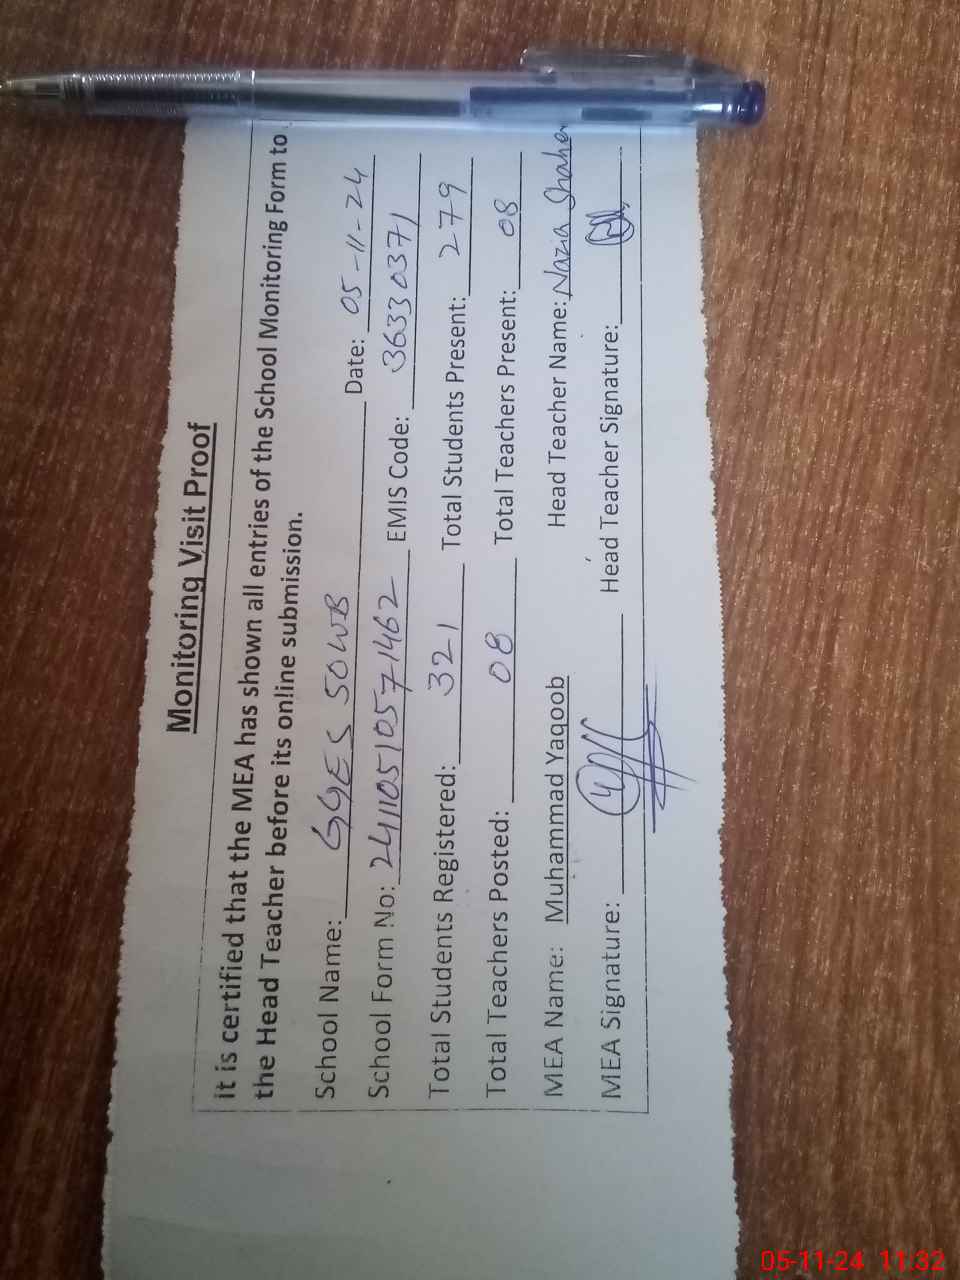 Monitoring Visit Proof
it is certified that the MEA has shown all entries of the School Monitoring Form to
the Head Teacher before its online submission.
School Name: GGES SOWB Date: 05-11-24
School Form No: 24110510571462 EMIS Code: 36330371
Total Students Registered: 321 Total Students Present: 279
Total Teachers Posted: 08 Total Teachers Present: 08
MEA Name: Muhammad Yaqoob Head Teacher Name: Nazia
MEA Signature: Head Teacher Signature:
05-11-24 11:32